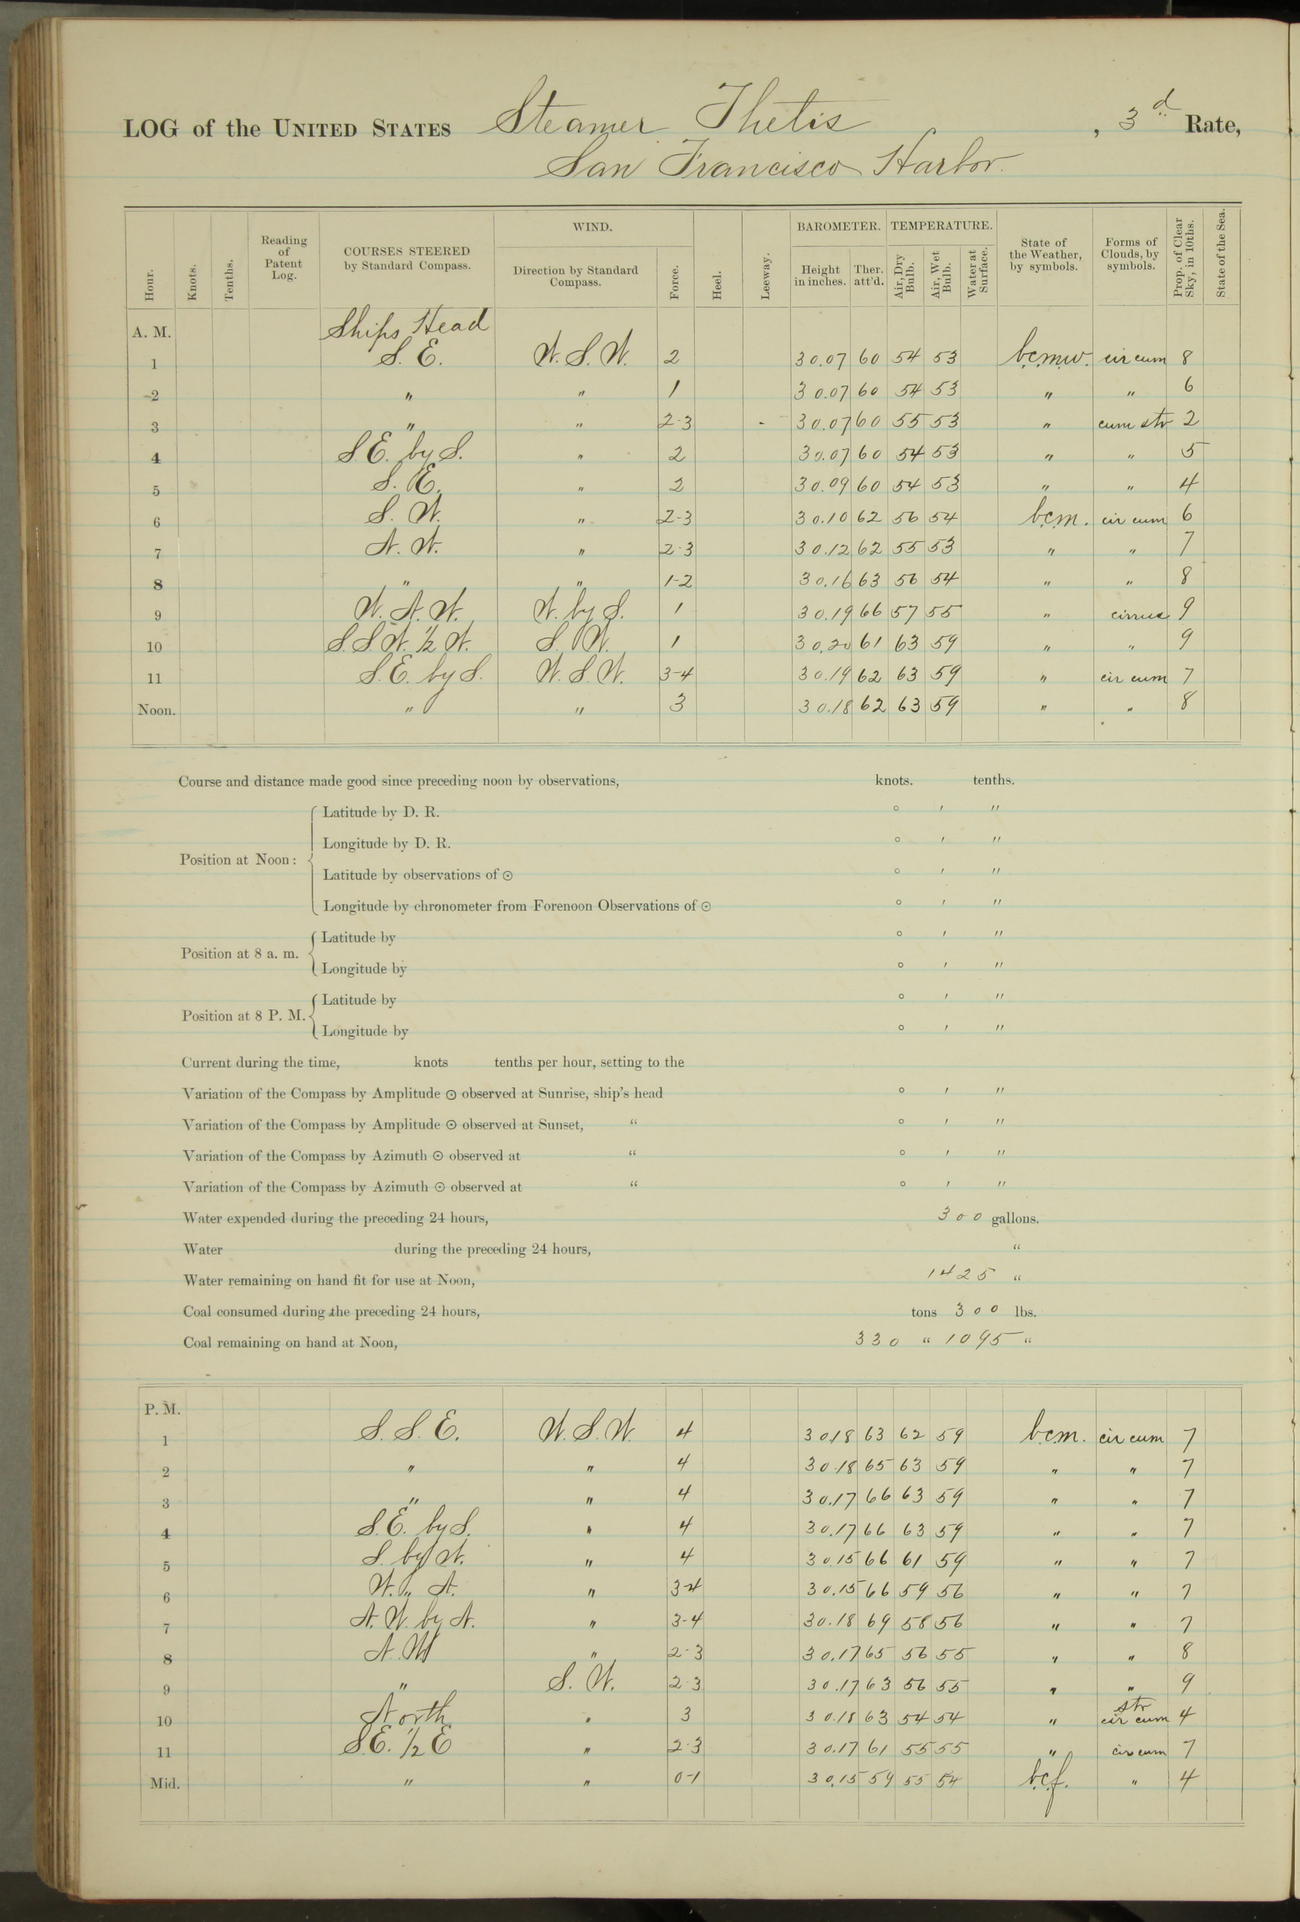 LOG of the UNITED STATES Steamer Thetis, 3d Rate,
San Francisco Harbor.
Hour. Knots. Tenths. Reading of Patent Log. COURSES STEERED by Standard Compass. WIND. Direction by Standard Compass. Force. Heel. Leeway. BAROMETER. Height in inches. Ther. att'd. TEMPERATURE. Air, Dry Bulb. Air, Wet Bulb. Water at Surface. State of the Weather, by symbols. Forms of Clouds, by symbols. Prop. of Clear Sky, in 10ths. State of the Sea.
A. M. Ships Head
1 S. E. W. S. W. 2 30.07 60 54 53 b.c.m.w. cir cum 8
2 " " 1 30.07 60 54 53 " " 6
3 " " 2-3 30.07 60 55 53 " cum str 2
4 S.E. by S. " 2 30.07 60 54 53 " " 5
5 S. E. " 2 30.09 60 54 53 " " 4
6 S. W. " 2-3 30.10 62 56 54 b.c.m. cir cum 6
7 N. W. " 2-3 30.12 62 55 53 " " 7
8 " " 1-2 30.16 63 56 54 " " 8
9 W. N. W. W. by S. 1 30.19 66 57 55 " cirrus 9
10 S.S.W. 1/2 W. S. W. 1 30.20 61 63 59 " " 9
11 S.E. by S. W. S. W. 3-4 30.19 62 63 59 " cir cum 7
Noon. " " 3 30.18 62 63 59 " " 8
Course and distance made good since preceding noon by observations, knots. tenths.
Position at Noon: Latitude by D. R. ° ′ ″
Longitude by D. R. ° ′ ″
Latitude by observations of ☉ ° ′ ″
Longitude by chronometer from Forenoon Observations of ☉ ° ′ ″
Position at 8 a. m. Latitude by ° ′ ″
Longitude by ° ′ ″
Position at 8 P. M. Latitude by ° ′ ″
Longitude by ° ′ ″
Current during the time, knots tenths per hour, setting to the
Variation of the Compass by Amplitude ☉ observed at Sunrise, ship's head ° ′ ″
Variation of the Compass by Amplitude ☉ observed at Sunset, " ° ′ ″
Variation of the Compass by Azimuth ☉ observed at " ° ′ ″
Variation of the Compass by Azimuth ☉ observed at " ° ′ ″
Water expended during the preceding 24 hours, 300 gallons.
Water during the preceding 24 hours, "
Water remaining on hand fit for use at Noon, 1425 "
Coal consumed during the preceding 24 hours, tons 300 lbs.
Coal remaining on hand at Noon, 330 " 1095 "
P. M.
1 S. S. E. W. S. W. 4 30.18 63 62 59 b.c.m. cir cum 7
2 " " 4 30.18 65 63 59 " " 7
3 " " 4 30.17 66 63 59 " " 7
4 S.E. by S. " 4 30.17 66 63 59 " " 7
5 S by W. " 4 30.15 66 61 59 " " 7
6 W. " N. " 3-4 30.15 66 59 56 " " 7
7 N. W. by N. " 3-4 30.18 69 58 56 " " 7
8 N. W " 2-3 30.17 65 56 55 " " 8
9 " S. W. 2-3 30.17 63 56 55 " " 9
10 North " 3 30.18 63 54 54 " str cir cum 4
11 S.E. 1/2 E " 2-3 30.17 61 55 55 " cir cum 7
Mid. " " 0-1 30.15 59 55 54 b.c.f. " 4